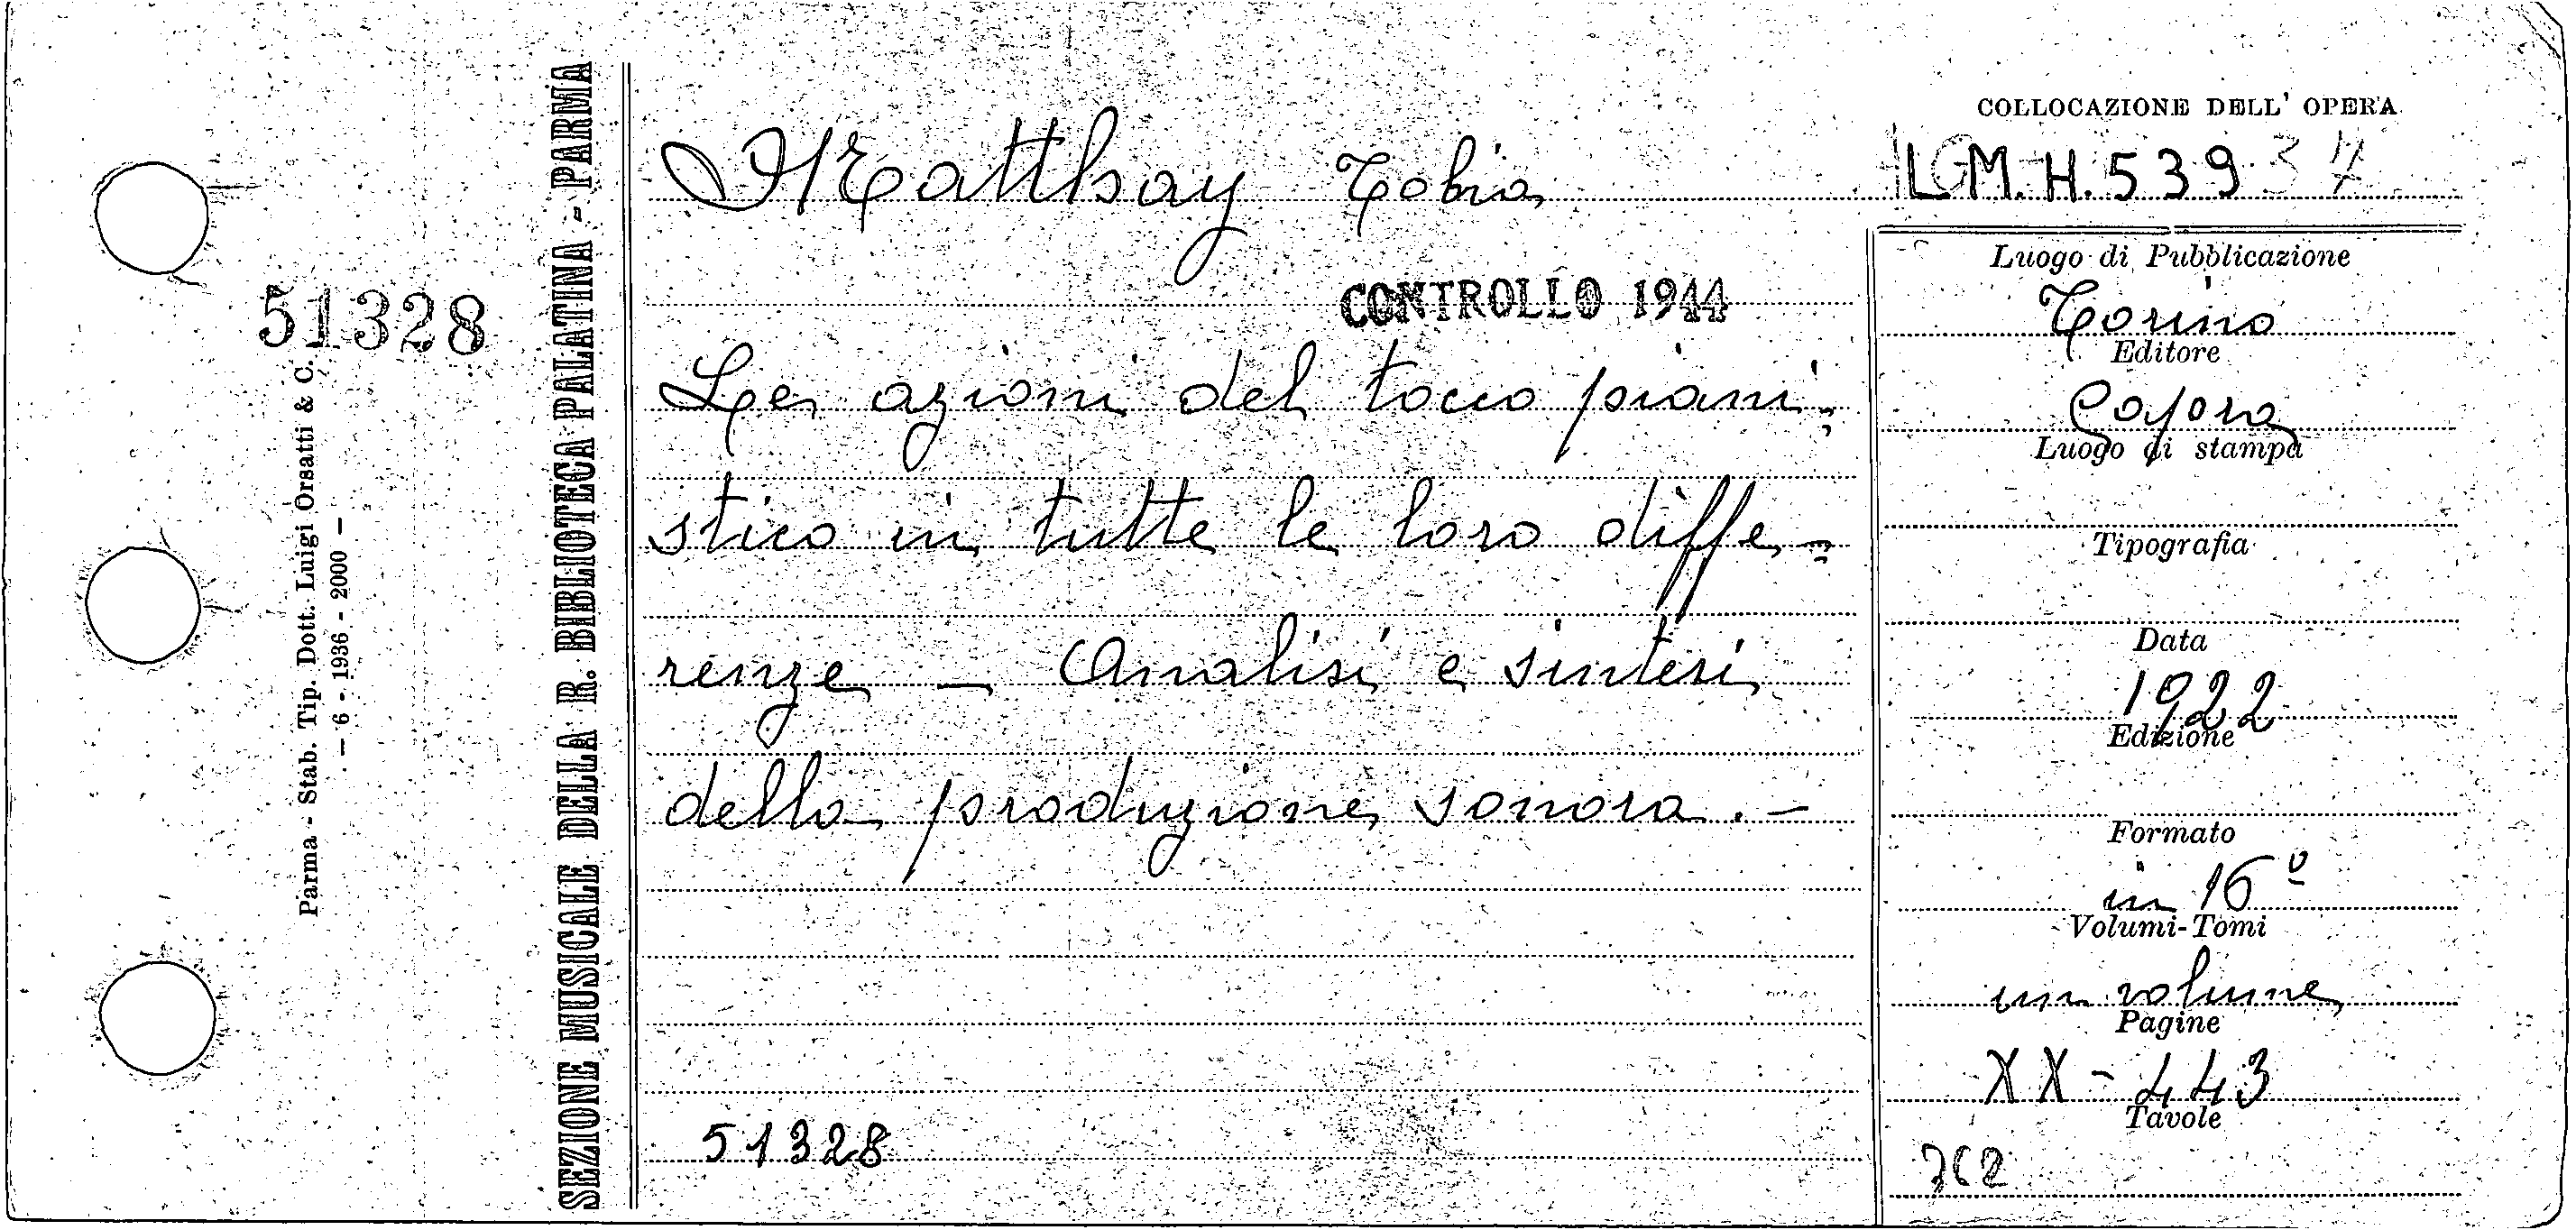 COLLOCAZIONE DELL' OPERA
Matthay Tobia
L M. H. 539
CONTROLLO 1944
51328
Le azioni del tocco piani=
stico in tutte le loro diffe=
renze — Analisi e sintesi
della produzione sonora. —
51328
Luogo di Pubblicazione
Torino
Editore
Luogo di stampa
Tipografia
Data
1922
Edizione
Formato
in 16º
Volumi-Tomi
un volume
Pagine
XX - 443
Tavole
SEZIONE MUSICALE DELLA R. BIBLIOTECA PALATINA - PARMA
Parma - Stab. Tip. Dott. Luigi Orsatti & C.
— 6 - 1936 - 2000 —